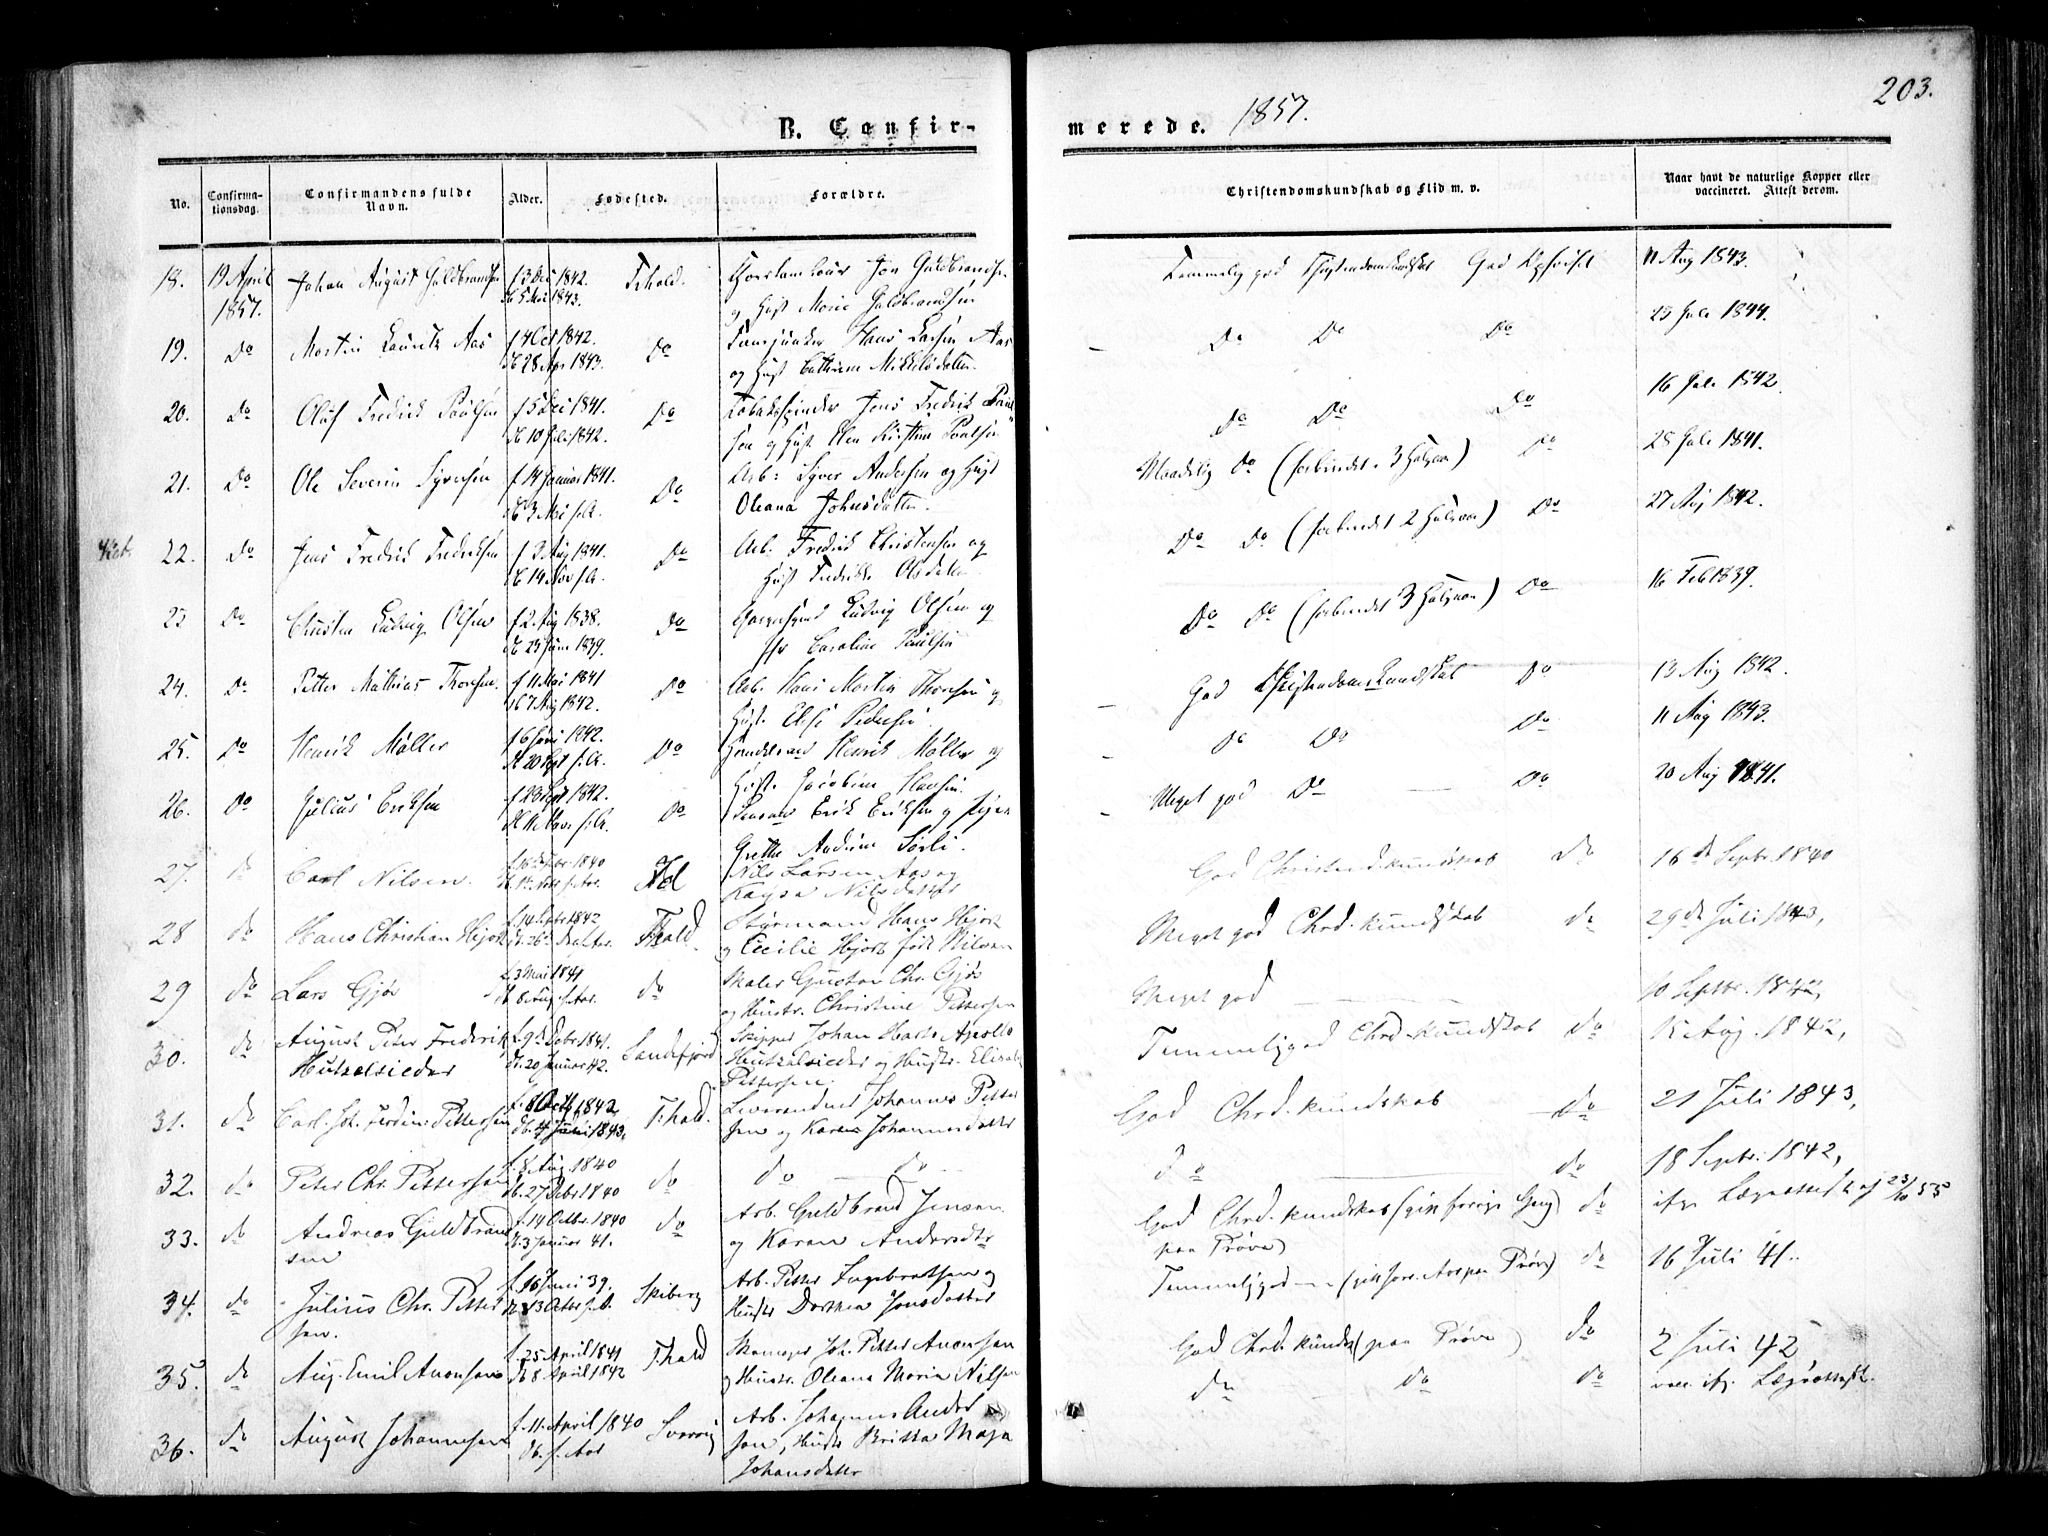 203.
B. Confirmerede. 1857.
No.
Confirmationsdag.
Confirmandens fulde Navn.
Alder.
Fødested.
Forældre.
Christendomskundskab og Flid m. v.
Naar havt de naturlige Kopper eller vaccineret. Attest derom.
18. 19 April 1857. Johan August Guldbrandsen f 3 Dec 1842. db 5 Mai 1843. Fr.hald. Jon Guldbrandsen
og Hust Marie Guldbrandsen
Temmelig god Christendomskundskab God Opførsel 11 Aug 1843.
19. Do Martin Lauritz Aas f 4 Oct 1842. db 28 Apr 1843. Do Hans Larsen Aas
og Hust Cathrine Mikkelsdatter.
Do Do Do 25 Juli 1844.
20. Do Oluf Fredrik Paulsen f 5 Dec 1841. db 10 Juli 1842. Do Tobakspinder Jens Fredrik Paulsen
og Hust Elen Kirstine Poulsen
Do Do Do 16 Juli 1842.
21. Do Ole Severin Syversen f 14 Januar 1841. db 3 Mai s. A. Do Arb: Syver Andersen og Hust
Oleana Johnsdatter.
Maadelig Do (forbindes 3 Halvaar) Do 28 Juli 1841.
22. Do Jens Fredrik Fredriksen f 3 Aug 1841. db 14 Nov s. A. Do Arb. Fredrik Christensen og
Hust Fredrikke Olsdatter.
Do Do (forbindes 2 Halvaar) Do 27 Aug 1842.
23 Do Christen Ludvig Olsen f 2 Aug 1838. db 23 Juni 1839. Do Ludvig Olsen og
Caroline Paulsen
Do Do (forbindes 3 Halvaar) Do 16 Feb 1839.
24. Do Petter Mathias Thoresen. f 11 Mai 1841 db 7 Aug 1842. Do Arb. Hans Martin Thoresen og
Hust. Else Pedersen.
God Christendomskundskab Do 13 Aug 1842.
25. Do Henrik Møller f 6 Juni 1842. db 20 Sept s. A. Do Henrik Møller og
Hust. Jacobine Hansen.
Do Do Do 11 Aug 1843.
26. Do Julius Eriksen f 23 Sept 1842. db 11 Nov s. A. Do Erik Eriksen og Pigen
Grethe Andrine Sørli.
Meget god Do Do 20 Aug 1841.
27. do Carl Nilsen. Id Nils Larsen Aas og
Kaysa Nilsdatter
God Christend.kundskab do 16de Septbr. 1840
28 do Hans Christian Hjort Fr.hald. Styrmand Hans Hjort
og Cecilie Hjort født Nilsen
Meget god Chrd. kundskab do 29de Juli 1843,
29 do Lars Gjøs f. 3 Mai 1841 db. 8 Aug. s. Aar. do Maler Gustav Chr. Gjøs
og Hustr. Christine Pettersen
Meget god 10 Septbr. 1842,
30. do August Peter Frederik
Hutzelsieder f. 9de Debr 1841. db. 20 Januar 42. Sandefjord Skipper Johan Apollo
Hutzelsieder og Hustr. Elisab
Pettersen.
Temmelig god Chrd. kundskab do 15 Aug. 1842,
31. do Carl. Joh. Ferdin: Pettersen f. 8 Octb 1842 db. 4 Juni 1843. Fr.hald. Johannes Petter
sen og Karen Johannesdatter
God Chrd. kundskab do 21 Juli 1843,
32. do Peter Chr. Pettersen f. 8 Aug. 1840 db. 27 Debr 1840 do do do
do do 18 Septbr. 1842,
33. do Andreas Guldbrand
sen f. 14 Octbr. 1840 db. 3 Januar 41. do Arb. Guldbrand Jensen
og Karen Andersdtr
God Chrd. kundskab (gik forrige Gang
paa Prøve) do ifg. Lægeattest af 23/10 55
34. do Julius Chr. Petter
sen. f. 16 Juni 39. db. 13 Octbr s. A. Skiberg Arb. Petter Ingebretsen og
Hustr Dorthea Jonsdatter
Temmelig god (gik forr. Aar paa Prøve) do 16 Juli 41.
35. do Aug. Emil Aronsen f. 25 April 1841 db 8. April 1842 Fr.hald Joh. Petter Aronsen
og Hustr. Oleana Maria Nilsen
God Chrd. kundsk (paa Prøve) do 2 Juli 42
36. do August Johannesen f. 11. April 1840 db. s. Aar Sverrig Arb. Johannes Ander
sen, Hustr Britta Maja
Johansdatter
do do do vacc. ifg. Lægeattest.